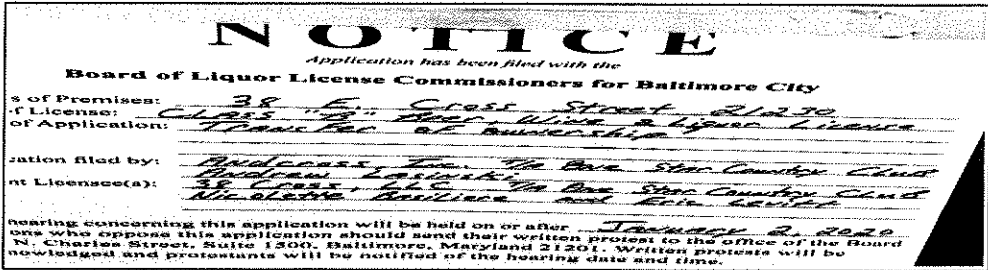 NOTICE
Application has been filed with the
Board of Liquor License Commissioners for Baltimore City
s of Premises: 38 E. Cross Street 21230
f License: Class "B" Beer, Wine & Liquor License
of Application: Transfer of ownership
cation filed by: Andcross, Inc. T/a One Star Country Club
Andrew Lasinski
nt Licensee(s): 38 Cross, LLC T/a One Star Country Club
Nicolette Basiliere and Eric Levitt
hearing concerning this application will be held on or after January 2, 2020
ons who oppose this application should send their written protest to the office of the Board
N. Charles Street, Suite 1500, Baltimore, Maryland 21201. Written protests will be
nowledged and protestants will be notified of the hearing date and time.